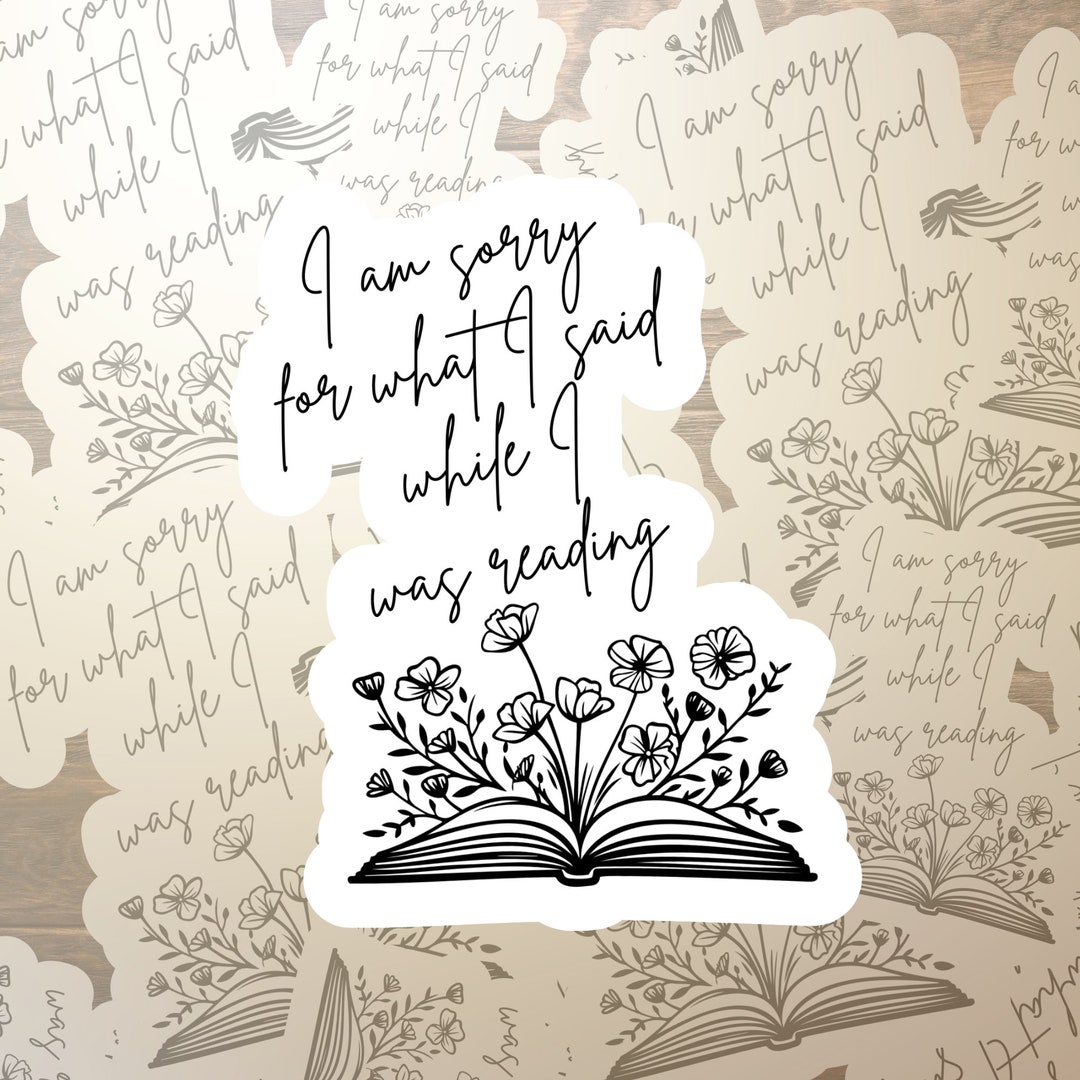 I am sorry
for what I said
while I
was reading